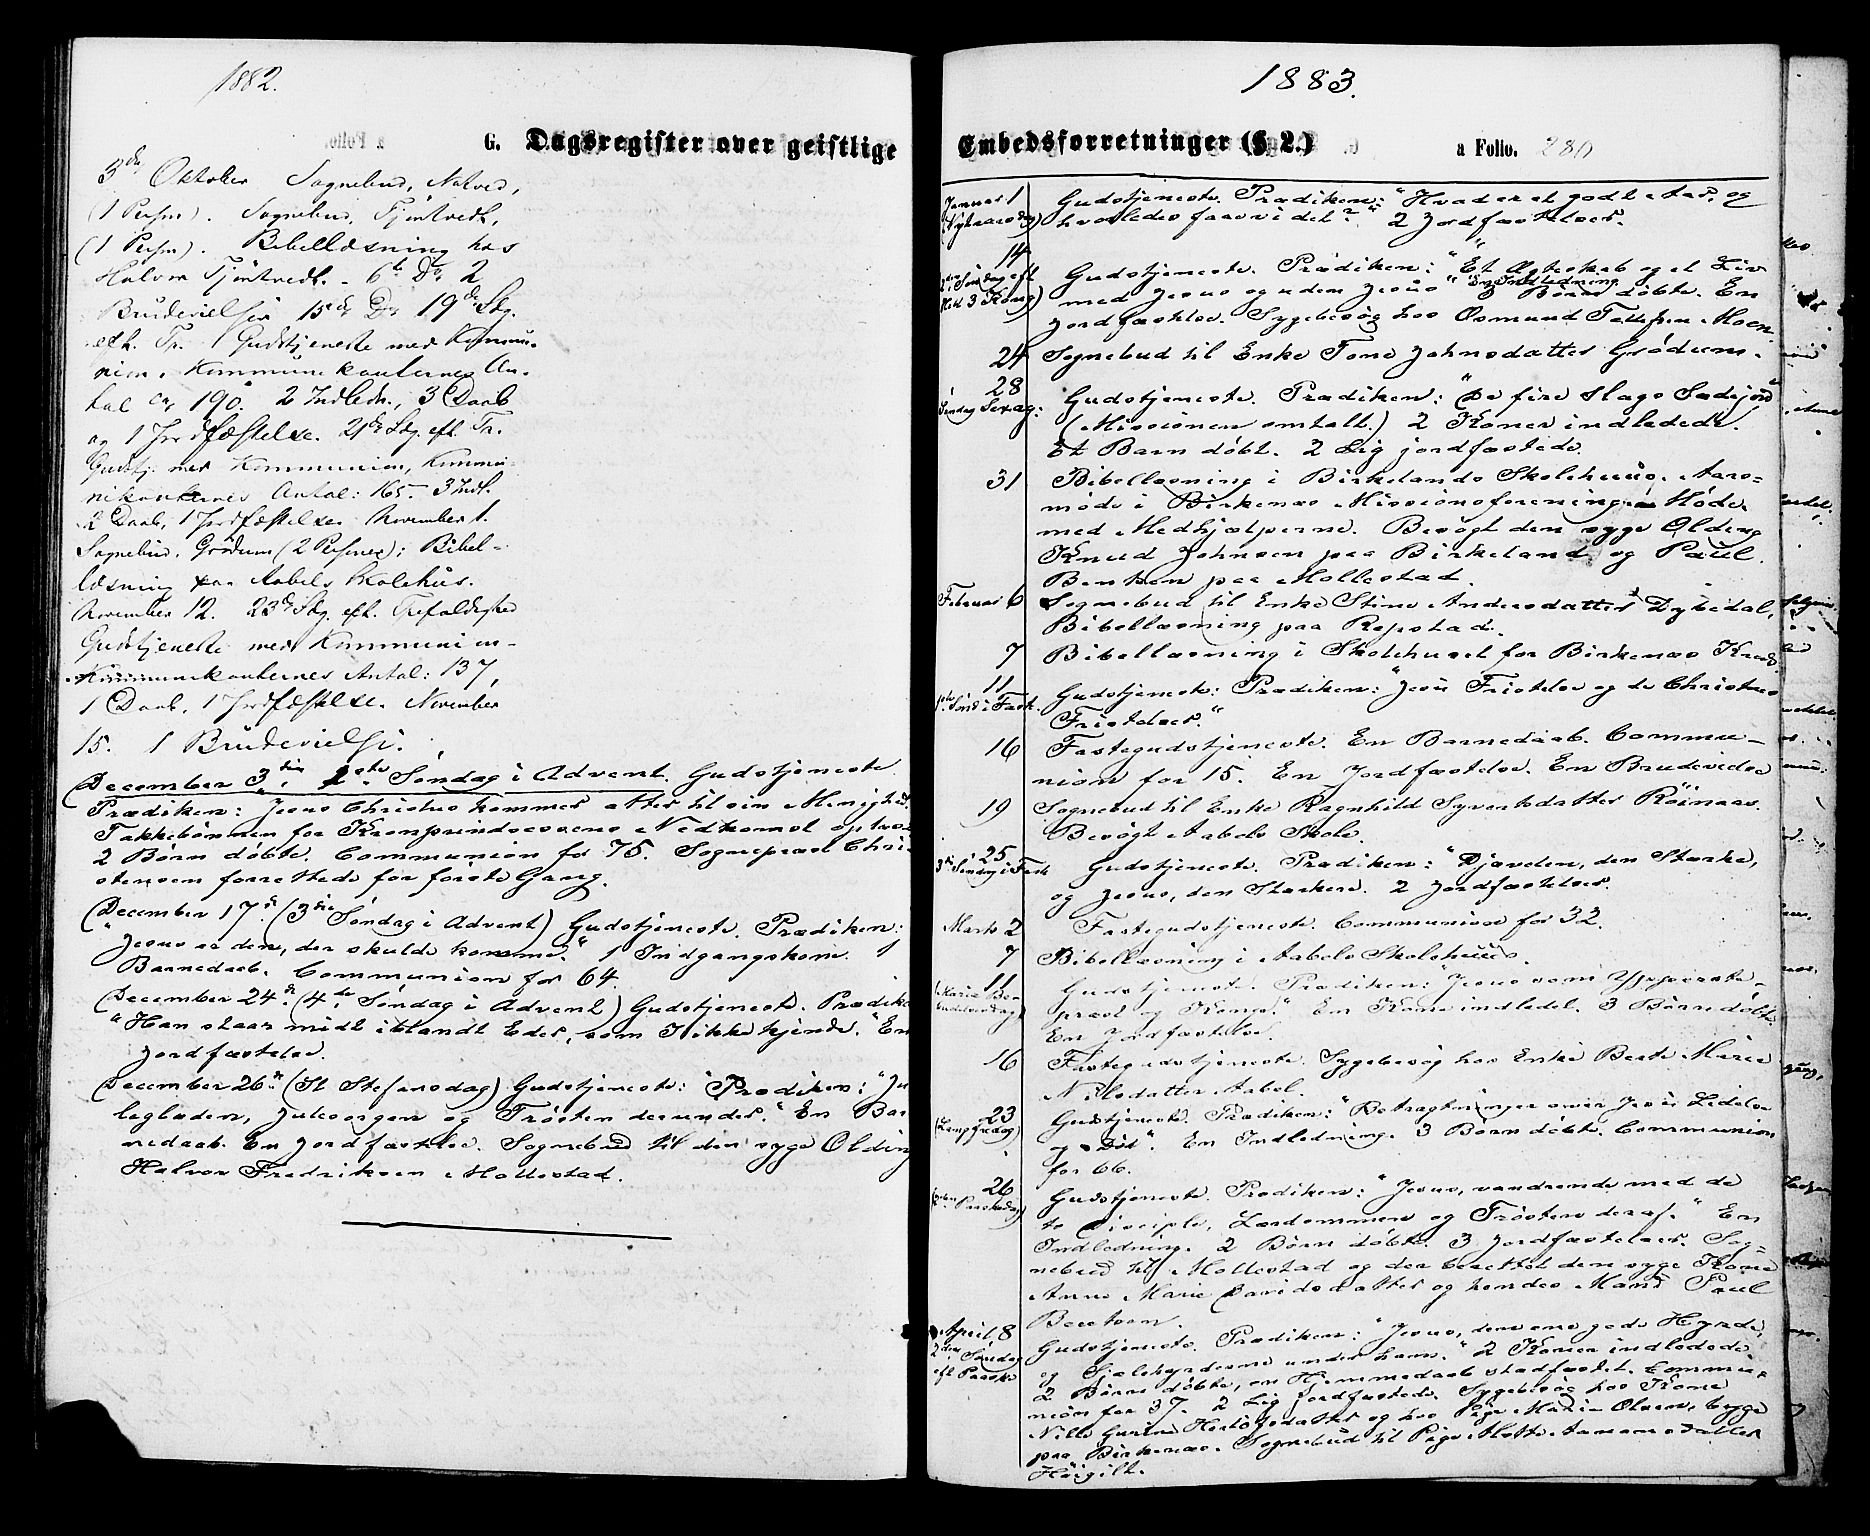 1882.
G. Dagsregister over geistlige
3die Oktober Sognebud, Natved,
(1 Person). Sognebud, Tjöntvedt,
(1 Person). Bibellæsning hos
Halvor Tjöntvedt. 6te Do 2
Brudevielser 15de Do 19de Sdg.
eft. Tr. 1 Gudstjeneste med Kommu-
nion. Kommunikanternes An-
tal er 190. 2 Indledn., 3 Daab
og 1 Jordfæstelse. 21de Sdg. eft. Tr.
Gudstj. med Kommunion, Kommu-
nikanternes Antal: 165. 3 Indl.
2 Daab, 1 Jordfæstelse. November 1.
Sognebud, Grödum (2 Personer); Bibel-
læsning paa Aabels Skolehus.
November 12. 23de Sdg. eft. Trefoldighed
Gudstjeneste med Kommunion
Kommunikanternes Antal: 137,
1 Daab, 1 Jordfæstelse. November
15. 1 Brudevielse.
December 3die 1ste Søndag i Advent. Gudstjeneste
Prædiken: Jesus Christus kommer atter til sin Menighed.
Takkebønnen for Kronprindsessens Nedkomst oplæs
2 Børn døbte. Communion for 75. Sognepræst Chri
stensen forrettede for første Gang.
December 17de (3die Søndag i Advent) Gudstjeneste. Prædiken:
"Jesus er den, der skulde komme." 1 Indgangskone. 1
Barnedaab. Communion for 64.
December 24de (4de Søndag i Advent) Gudstjeneste. Prædike
"Han staar midt iblandt Eder, som I ikke kjende." En
Jordfæstelse.
December 26de (St Stefansdag) Gudstjeneste: Prædiken: "Ju
leglæden, Julesorgen og Trøsten derunder." En Bar
nedaab. En Jordfæstelse. Sognebud til den syge Olding
Halvor Fredriksen Mollestad.
1883.
Embedsforretninger (§ 2.)
a Folio. 280
Januar 1 Gudstjeneste. Prædiken: "Hvad er et godt Aar, og
(Nytaarsdag) hvorledes faar vi det?" 2 Jordfæstelser.
14
2den Søndag eft Gudstjeneste. Prædiken: "Et Ægteskab og et Liv
Hel 3 Kong) med Jesus og uden Jesus" En Indledning. 3 Børn døbte. En
Jordfæstelse. Sygebesøg hos Osmund Tellefsen Moen
24 Sognebud til Enke Tone Johnsdatter Grødum.
28
Søndag Sexag: Gudstjeneste. Prædiken: "De fire Slags Sædejord"
(Missionen omtalt.) 2 Koner indledede.
Et Barn døbt. 2 Lig jordfæstede.
31 Bibellæsning i Birkelands Skolehuus. Aars-
møde i Birkenæs Missionsforening. Møde
med Medhjælperne. Besøgt den syge Olding
Knud Johnsen paa Birkeland og Paul
Bentsen paa Mollestad.
Februar 6 Sognebud til Enke Stine Andersdatter Dybedal,
Bibellæsning paa Repstad.
7 Bibellæsning i Skolehuset for Birkenæs Kreds
11
1ste Sønd i Fast. Gudstjeneste: Prædiken: "Jesu Fristelse og de Christnes
Fristelser."
16 Fastegudstjeneste. En Barnedaab. Commu-
nion for 15. En Jordfæstelse. En Brudevielse
19 Sognebud til Enke Ragnhild Syvertsdatter Röinaas.
Besøgt Aabels Skole.
25
3die Søndag i Fast Gudstjeneste. Prædiken: "Djævelen, den Stærke,
og Jesus, den Stærkere. 2 Jordfæstelser.
Marts 2 Fastegudstjeneste. Communion for 32.
7 Bibellæsning i Aabels Skolehuus.
11 Gudstjeneste. Prædiken: "Jesus som Ypperste-
(Maria Be- præst og Konge." En Kone indledet. 3 Børn døbte
budelsesdag) En Jordfæstelse.
16 Fastegudstjeneste. Sygebesøg hos Enke Berte Marie
Nilsdatter Aabel.
23 Gudstjeneste. Prædiken: "Betragtninger over Jesu Lidelse
(Langfredag) og Død". En Indledning. 3 Børn døbte. Communion
for 66.
26 Gudstjeneste. Prædiken: "Jesus, vandrende med de
(2den Paaskedag) to Disciple, Lærdommen og Trøsten deraf." En
Indledning. 2 Børn døbte. 3 Jordfæstelser. Sog-
nebud til Mollestad og der berettet den syge Kone
Anne Marie Davidsdatter og hendes Mand Paul
Bentsen.
April 8 Gudstjeneste. Prædiken: "Jesus, den ene gode Hyrde,
2den Søndag og Sjælehyrderne under ham." 2 Koner indledede
eft Paaske 2 Børn døbte, en Hjemmedaab stadfæstet. Commu-
nion for 37. 2 Lig jordfæstede. Sygebesøg hos Kone
Nille Gurine Hertofsdatter og hos Pige Marie Olsen, begge
paa Birkenæs. Sognebud til Pige Mette Aamundsdatter
Höigilt.